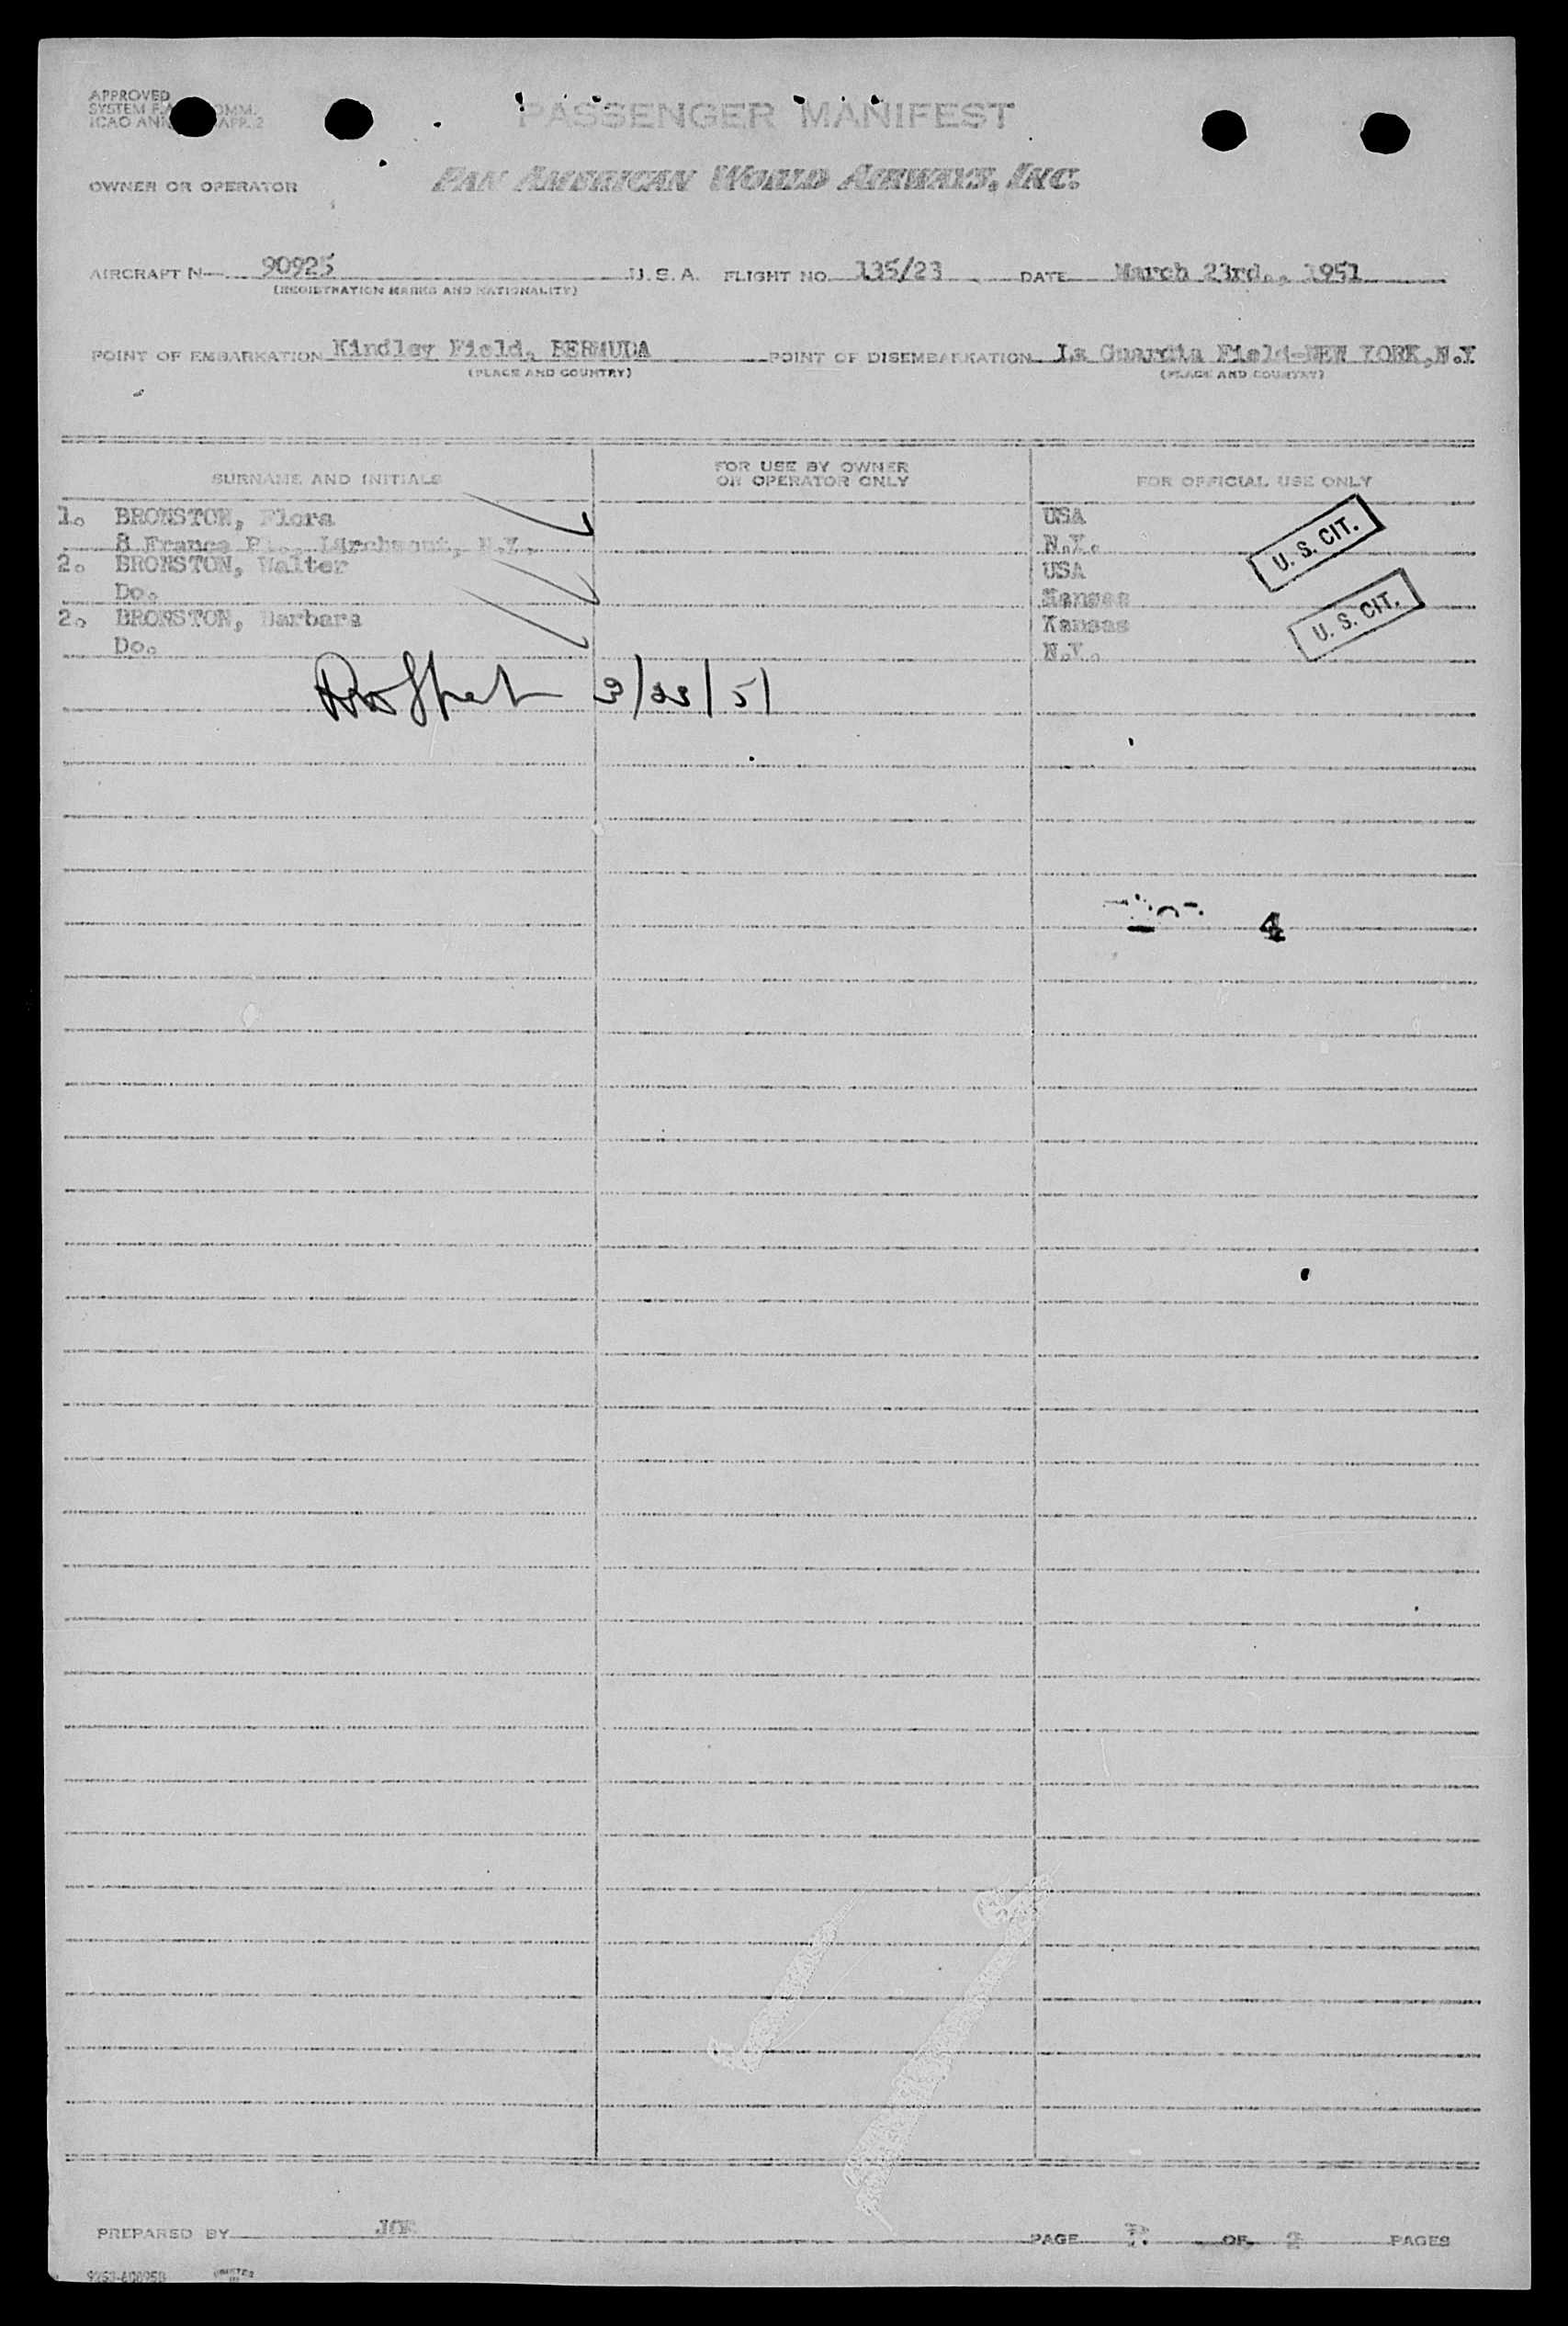 APPROVED
SYSTEM
ICAO
PASSENGER MANIFEST
OWNER OR OPERATOR PAN AMERICAN WORLD AIRWAYS, INC.
AIRCRAFT N— 90925 U.S.A. FLIGHT NO. 135/23 DATE March 23rd., 1951
(REGISTRATION MARKS AND NATIONALITY)
POINT OF EMBARKATION Kindley Field, BERMUDA POINT OF DISEMBARKATION La Guardia Field-NEW YORK,N.Y
(PLACE AND COUNTRY) (PLACE AND COUNTRY)
SURNAME AND INITIALS FOR USE BY OWNER OR OPERATOR ONLY FOR OFFICIAL USE ONLY
1. BRONSTON, Flora USA
8 France Pl., Larchmont, N.Y. N.Y. U. S. CIT.
2. BRONSTON, Walter USA
Do. Kansas
2. BRONSTON, Barbara Kansas U. S. CIT.
Do. N.Y.
3/23/51
4
PREPARED BY PAGE 2. OF 2 PAGES